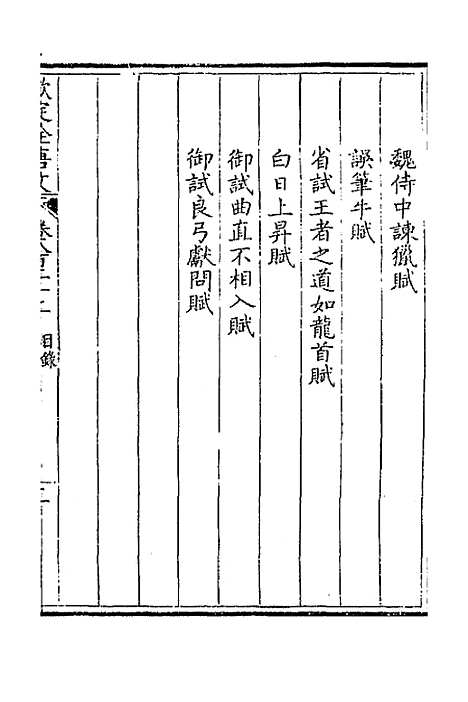 魏侍中諫獵賦
誤筆牛賦
省試王者之道如龍首賦
白日上昇賦
御試曲直不相入賦
御試良弓獻問賦
欽定全唐文 目錄